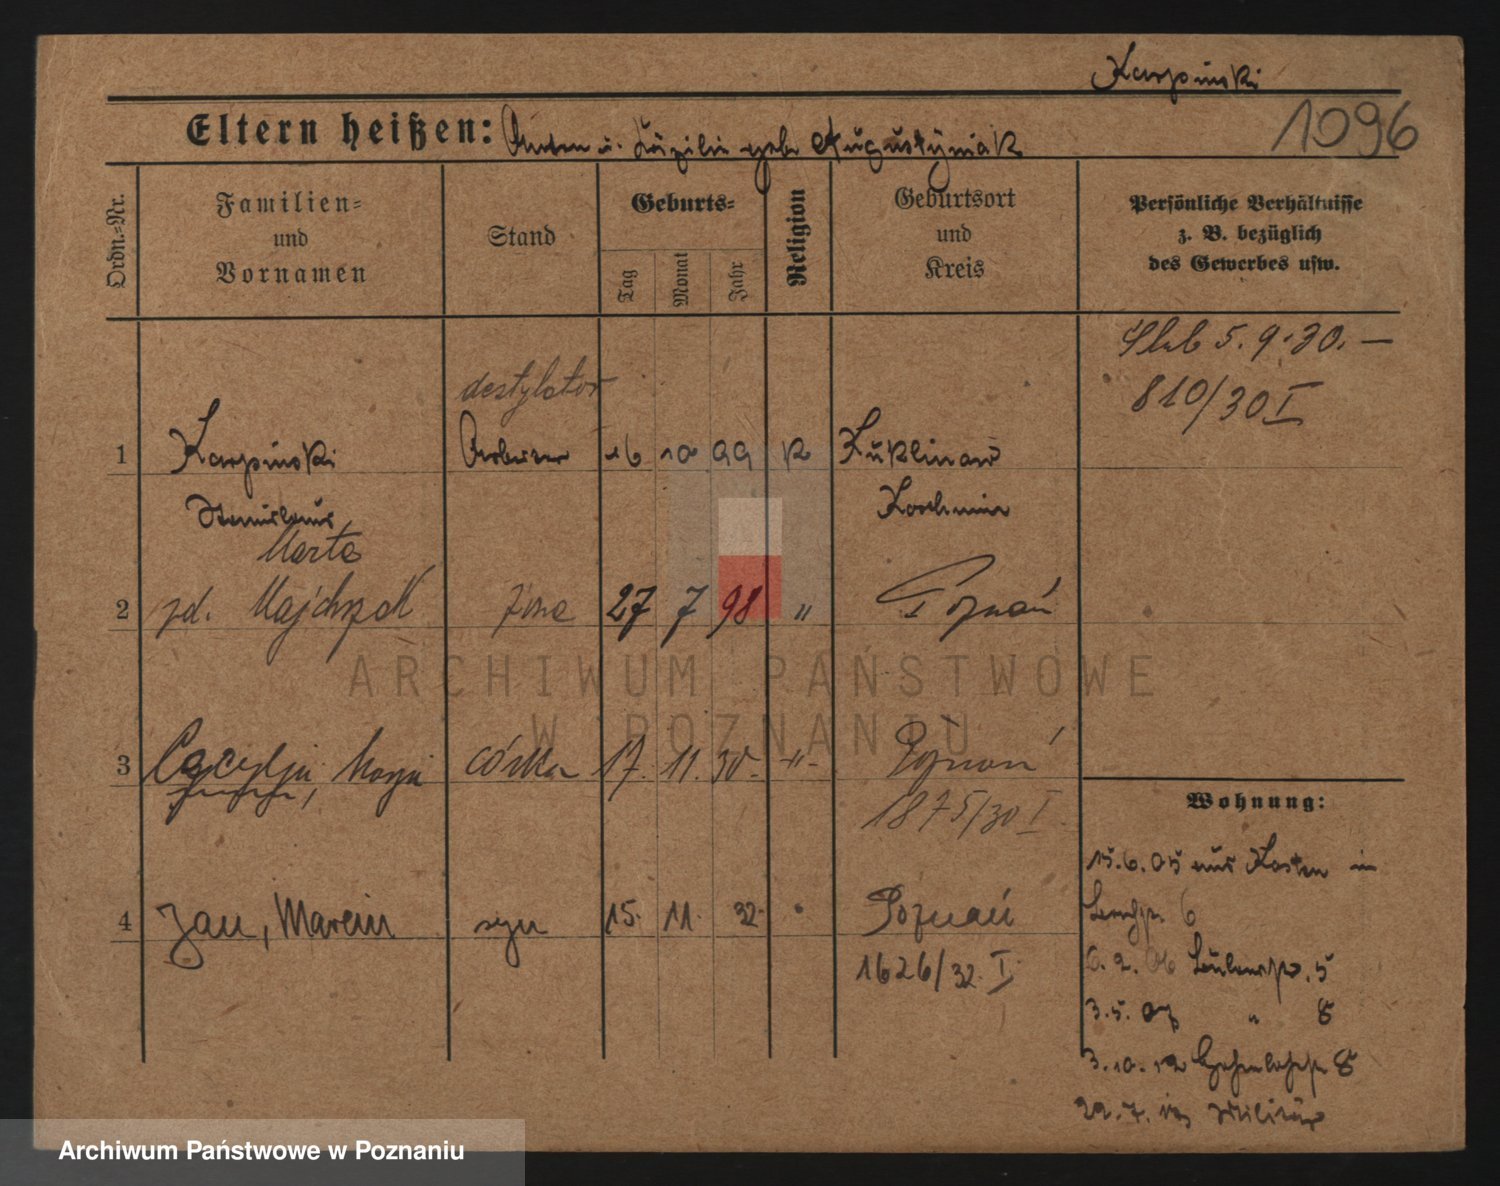 Karpinski
1096
Eltern heißen: Anton u. Zäzilie geb. Augustyniak
Ordn.-Nr.
Familien-
und
Vornamen
Stand
Geburts-
Tag
Monat
Jahr
Religion
Geburtsort
und
Kreis
Persönliche Verhältnisse
z. B. bezüglich
des Gewerbes usw.
Ślub 5. 9. 30. —
810/30 I
destylator
1 Karpinski Arbeiter 16 10 99 K Kuklinow
Stanislaus Koschmin
Marta
2 zd. Majchrzak żona 27 7 98 " Poznań
3 Cecylja, Marja córka 17. 11. 30. -"- Poznań
1875/30 I.
4 Jan, Marcin syn 15. 11. 32. " Poznań
1626/32. I.
Wohnung:
15.6.05 aus Kosten in
6
6.2.06 5
3.5.07 " 8
3.10.12 8
22.7. Militär
ARCHIWUM PAŃSTWOWE
W POZNANIU
Archiwum Państwowe w Poznaniu